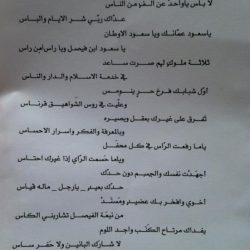 لا باس ياواحد عن الفز من الناس
عداك ربي شر الايام والباس
ياسعود عمانك ويا سعود الاوطان
يا سعود ابن فيصل ويا راس من راس
ثلاثة ملوك لهم صرت ساعد
في خدمة الاسلام والدار والناس
اول شبابك فرخ حر
وعليت في روس الشواهيق قرناس
تفرق على غيرك بعقل وبصيره
وبالمعرفة والفكر واسرار الاحساس
ياما رفعت الراي في كل محفل
وياما حسمت الراي إذا غيرك احتاس
أجهدت نفسك والجميع دون حدك
حدك بعيد يارجل ماله قياس
أخوي وافخر بك عضيد ومسند
من نبعة الفيصل تشاربني الكاس
يفداك مرتاح الكنب واجد اللوم
لا شارك البانين ولا حفر ساس